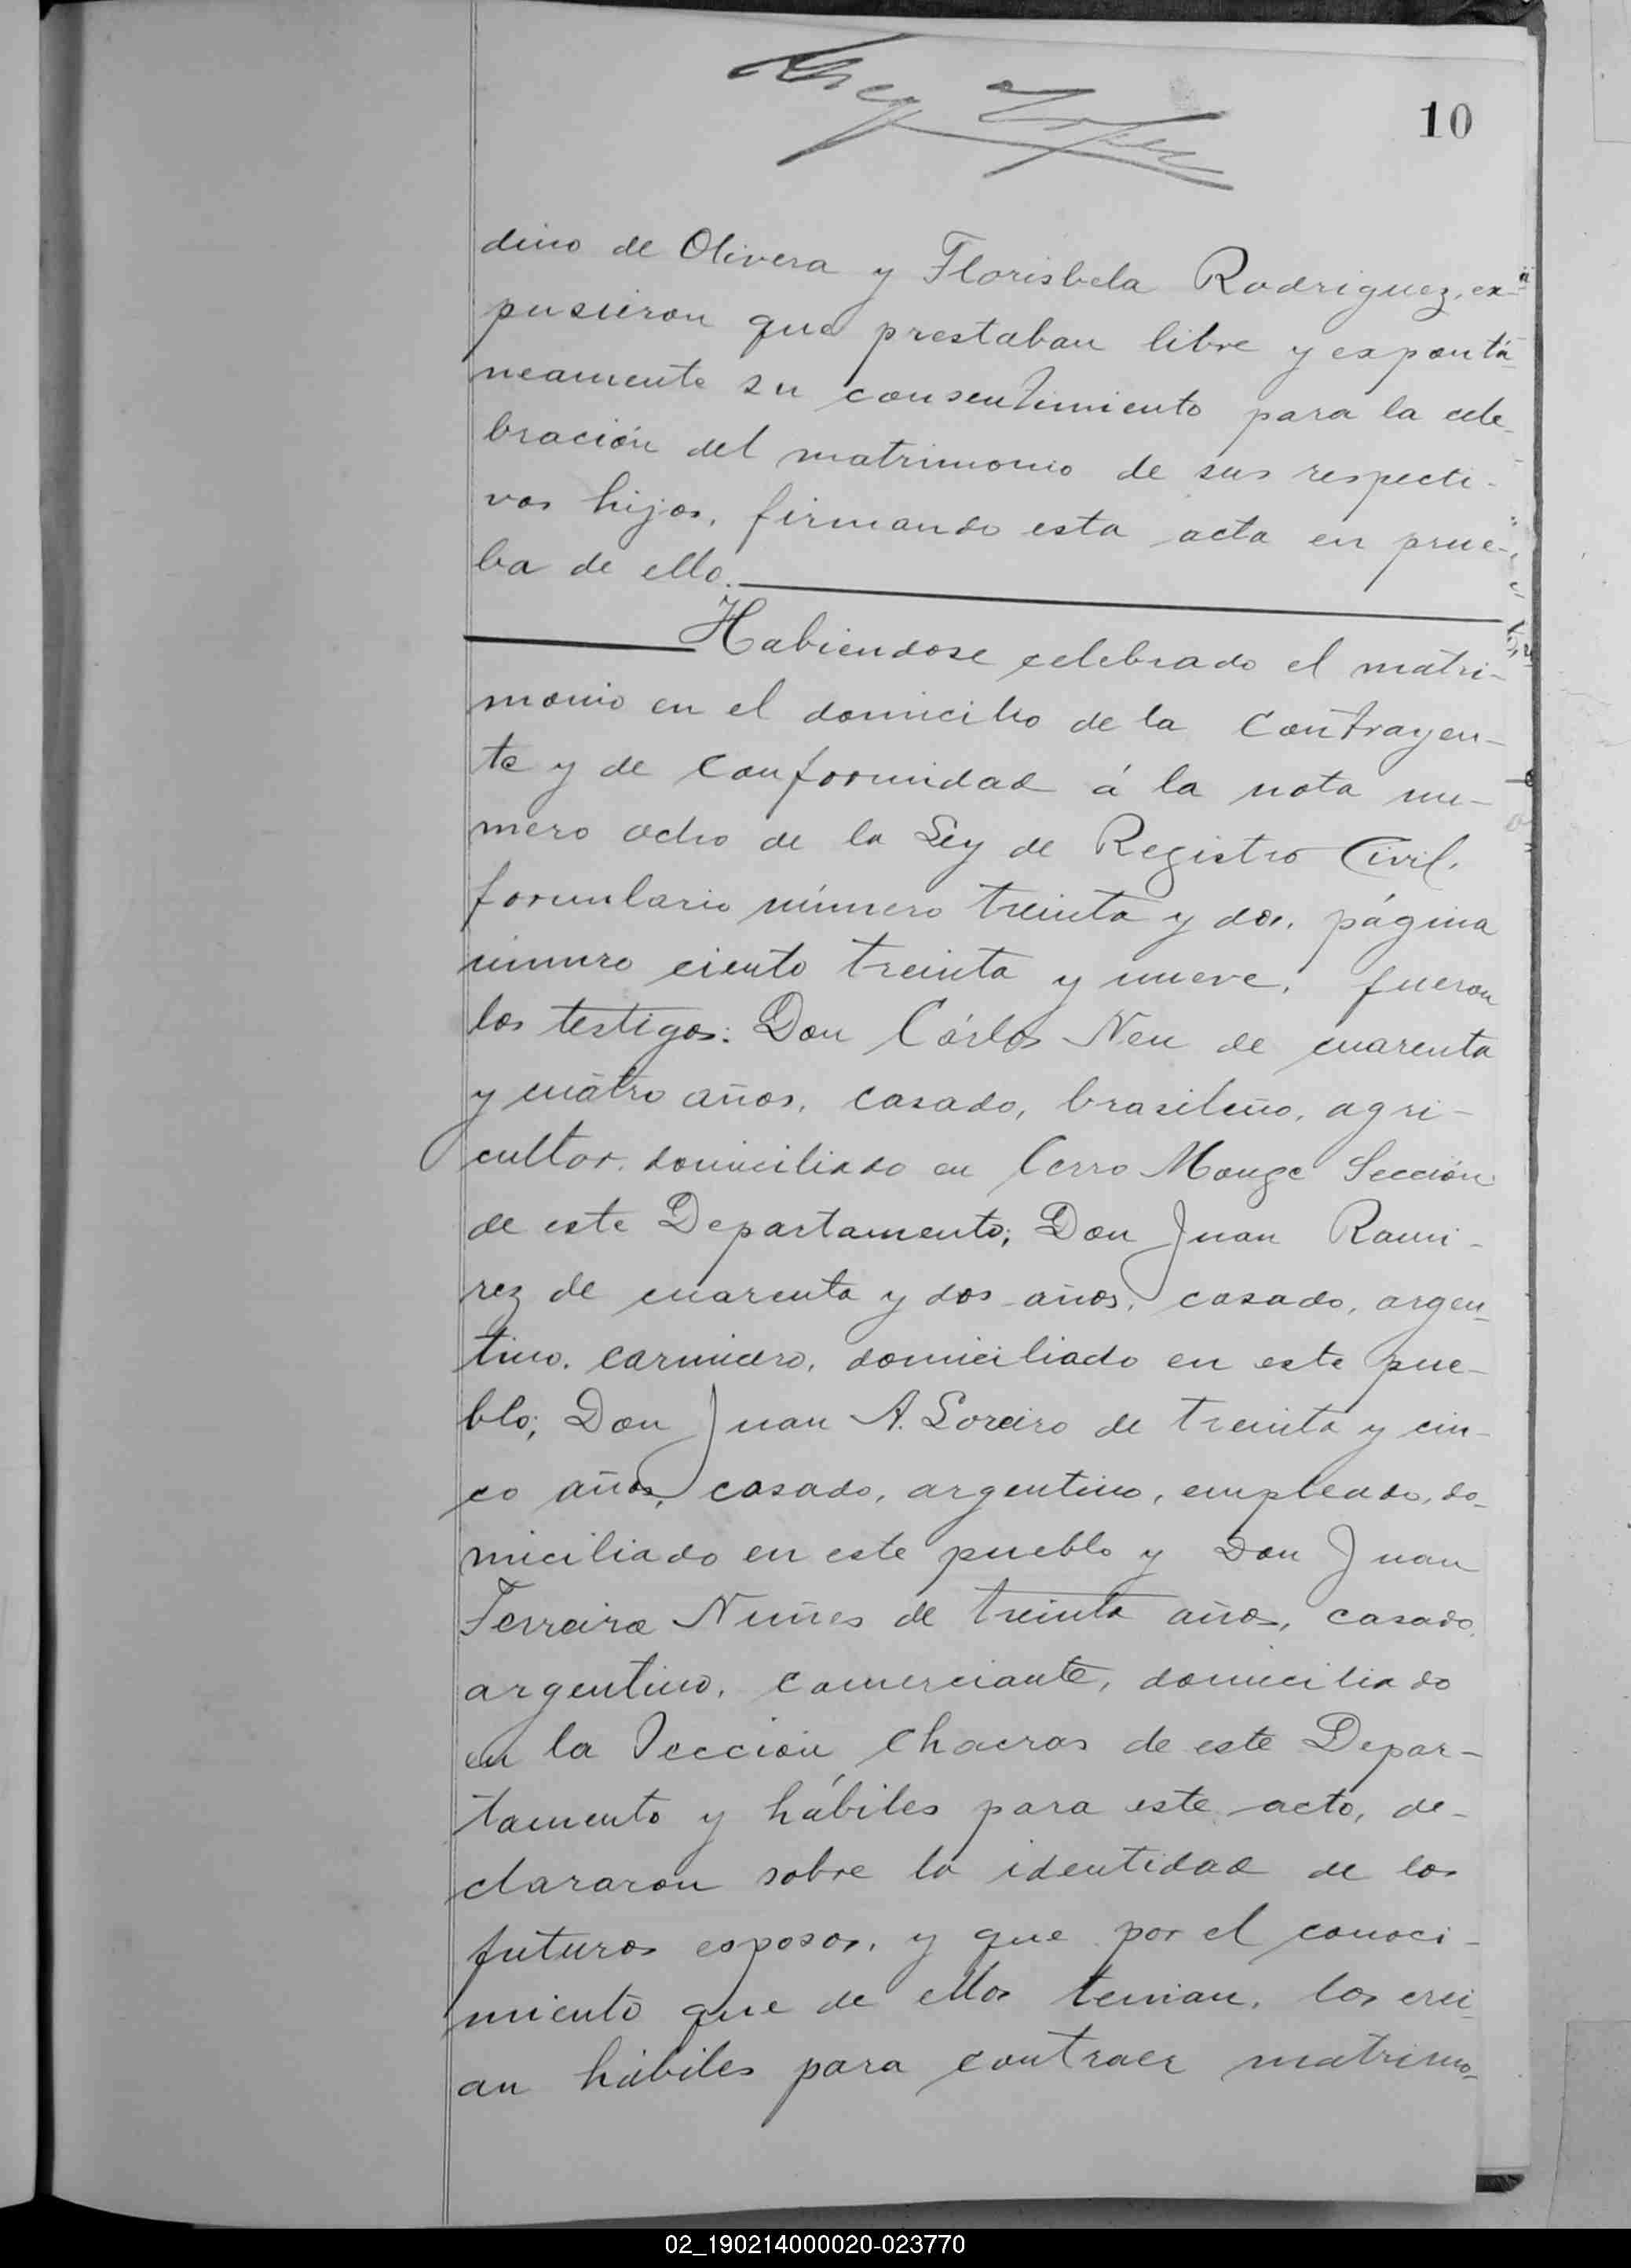 10
dino de Olivera y Florisbela Rodriguez, ex-
pusieron que prestaban libre y expontá-
neamente su consentimiento para la cele-
bración del matrimonio de sus respecti-
vos hijos, firmando esta acta en prue-
ba de ello.
Habiendose celebrado el matri-
monio en el domicilio de la contrayen-
te y de conformidad á la nota nu-
mero ocho de la Ley de Registro Civil,
formulario número treinta y dos, página
número ciento treinta y nueve, fueron
los testigos: Don Cárlos Neu de cuarenta
y cuatro años, casado, brasileño, agri-
cultor, domiciliado en Cerro Monge Sección
de este Departamento; Don Juan Rami-
rez de cuarenta y dos años, casado, argen-
tino, carnicero, domiciliado en este pue-
blo; Don Juan A. Loreiro de treinta y cin-
co años, casado, argentino, empleado, do-
miciliado en este pueblo y Don Juan
Ferreira Nuñes de treinta años, casado,
argentino, comerciante, domiciliado
en la Sección Chacras de este Depar-
tamento y hábiles para este acto, de-
clararon sobre la identidad de los
futuros esposos, y que por el conoci-
miento que de ellos tenian, los crei-
an hábiles para contraer matrimo-
02_190214000020-023770